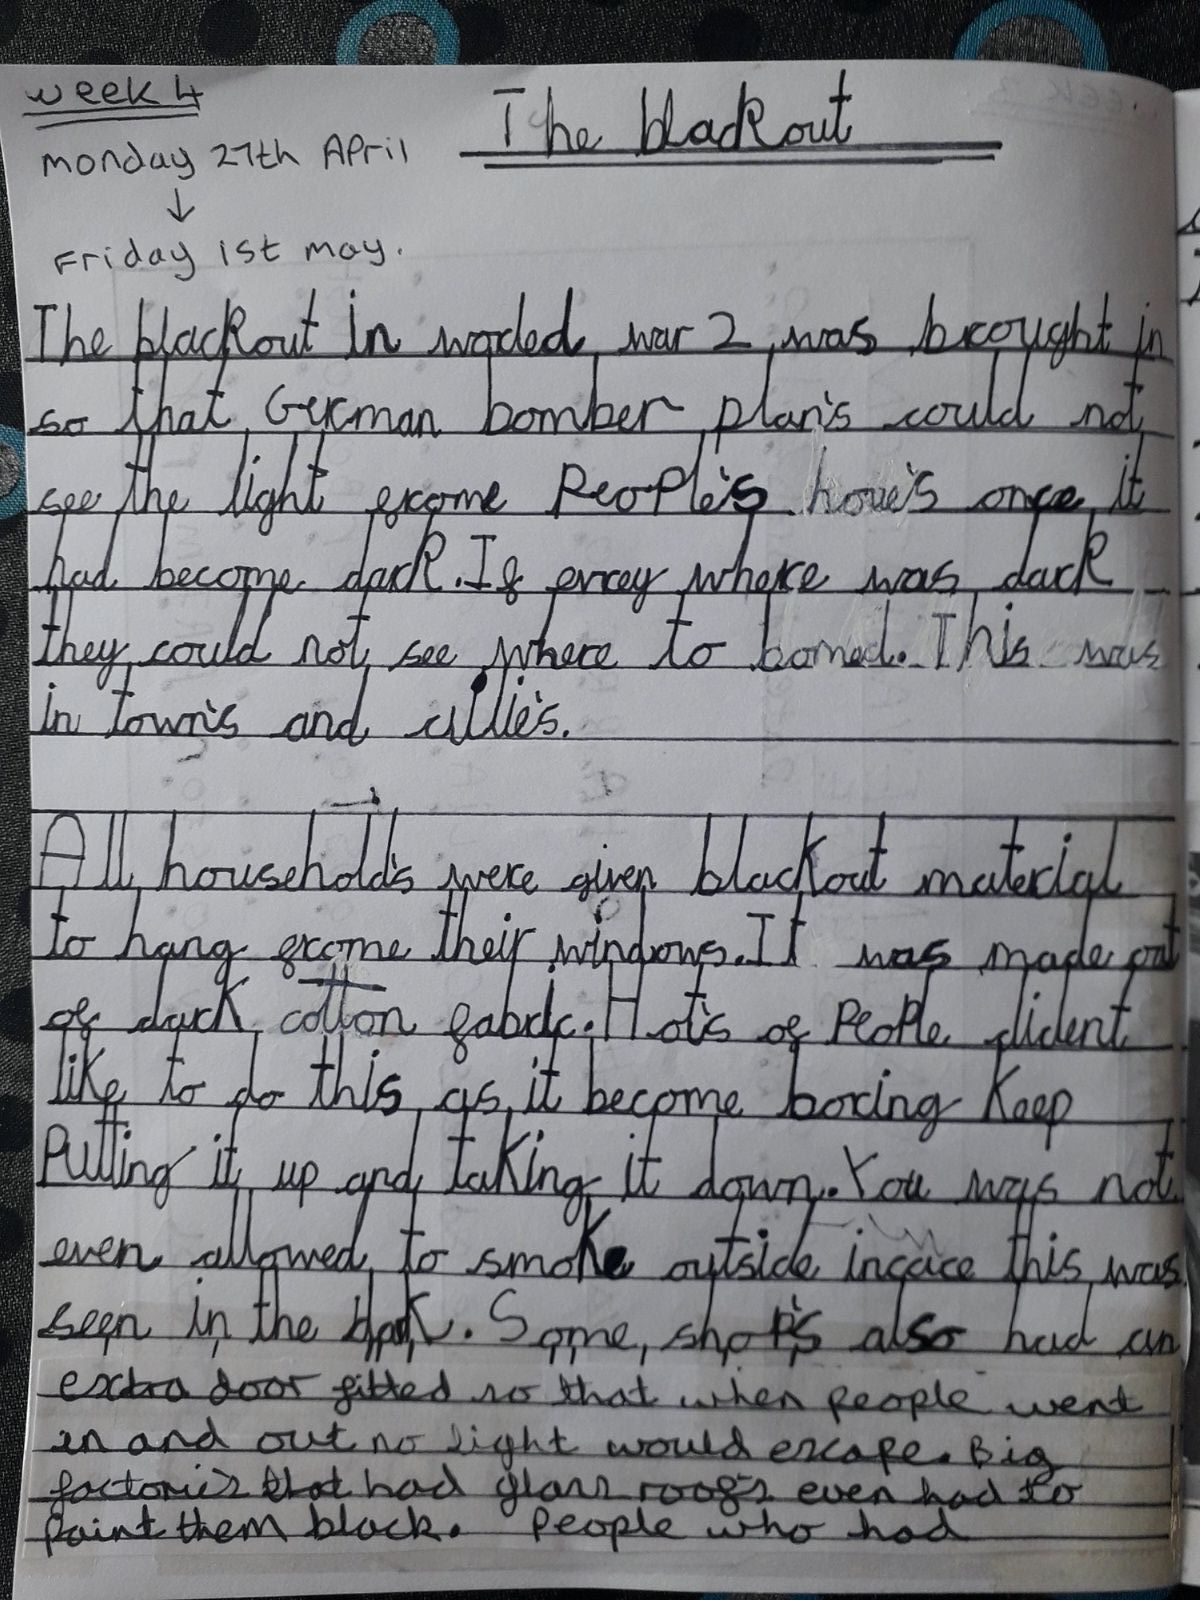 week 4
The blackout
monday 27th April
↓
Friday 1st may.
The blackout in worded war 2 was brought in
so that German bomber plan's could not
see the light frome People's houe's once it
had become dark. If evrey where was dark
they could not see where to bomed. This was
in town's and citie's.
All household's were given blackout material
to hang frome their windows. It was made out
of dark cotton fabric. of People dident
like to do this as it become boring Keep
Putting it up and taking it down. You was not
even allowed to smoke outside incace this was
seen in the dark. Some shop's also had an
extra door fitted so that when people went
in and out no light would escape. Big
factories that had glass roofs even had to
paint them black. People who had